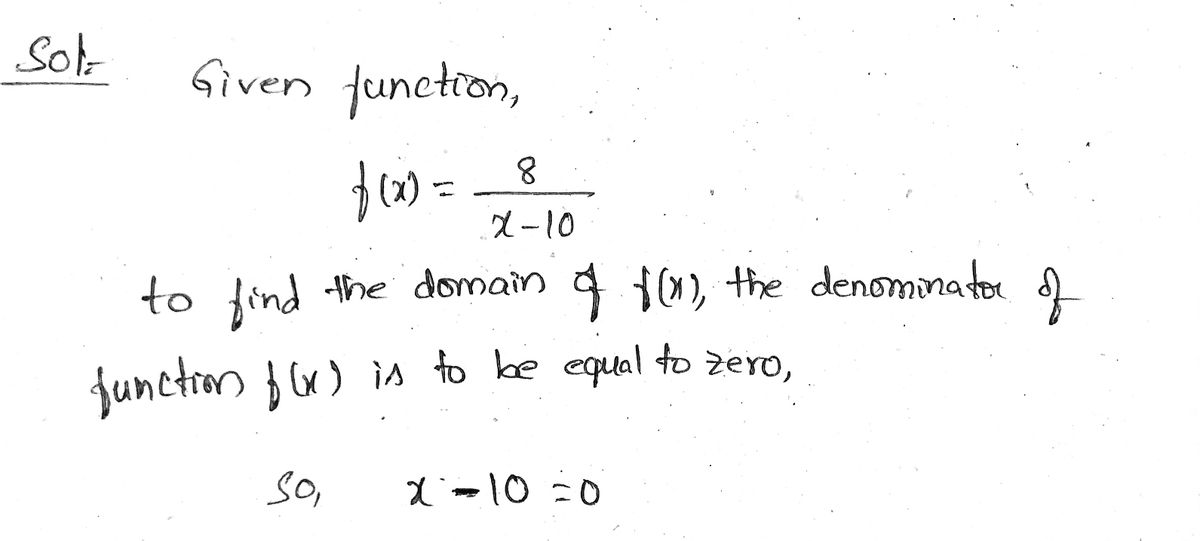 Sol:-
Given function,
f(x) = 8 / x-10
to find the domain of f(x), the denominator of
function f(x) is to be equal to zero,
So, x - 10 = 0